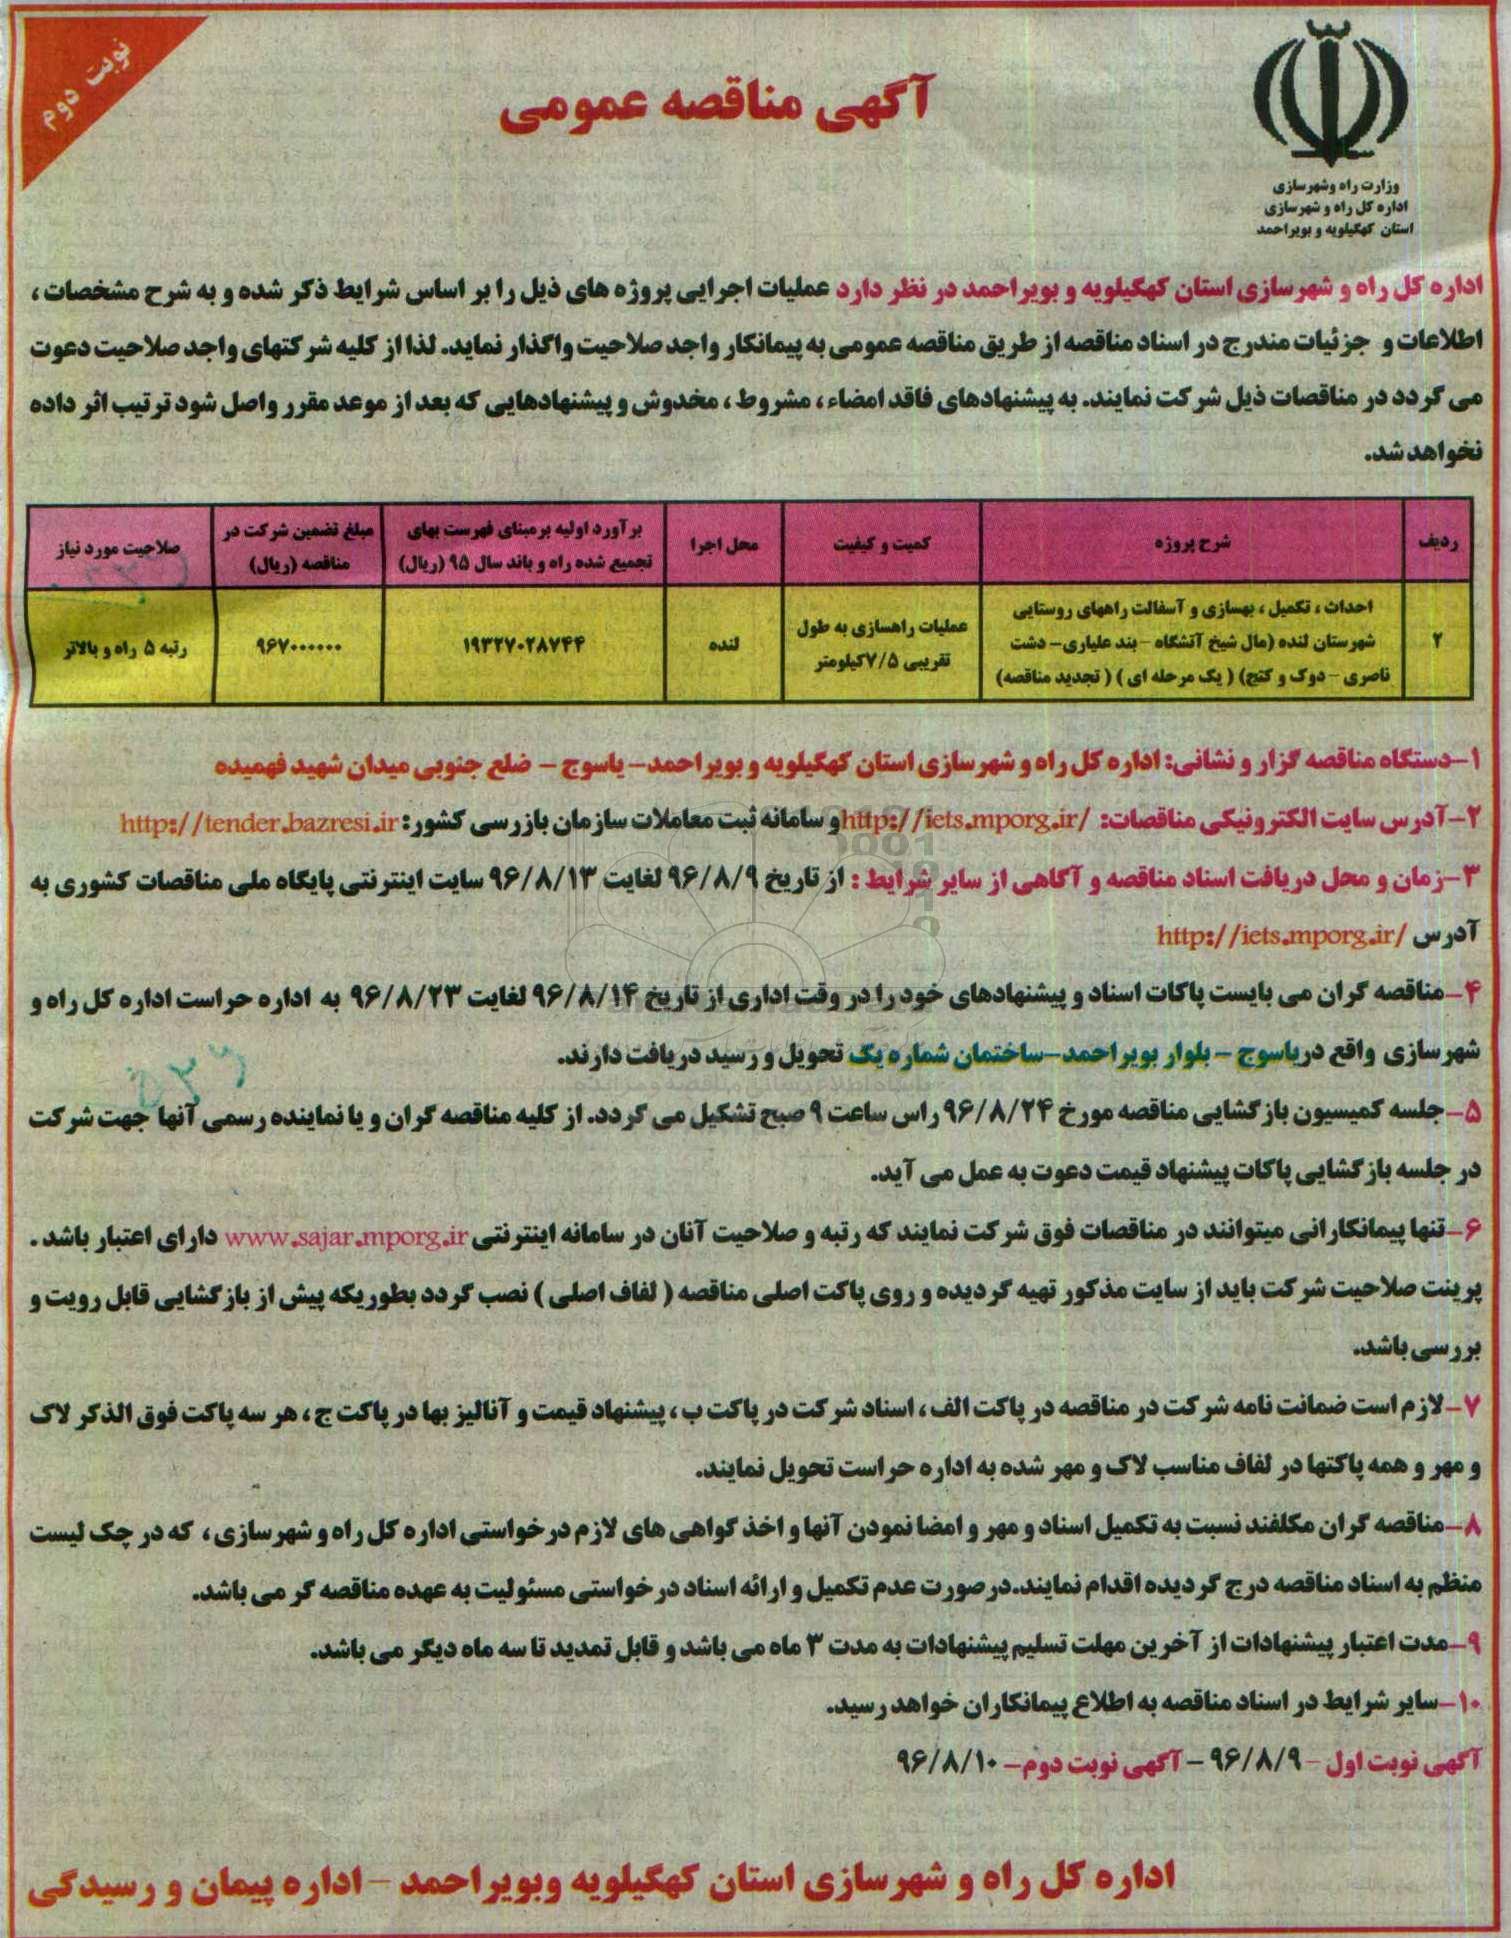 نوبت دوم
آگهی مناقصه عمومی
وزارت راه وشهرسازی
اداره کل راه و شهرسازی
استان کهگیلویه و بویراحمد
اداره کل راه و شهرسازی استان کهگیلویه و بویراحمد در نظر دارد عملیات اجرایی پروژه های ذیل را بر اساس شرایط ذکر شده و به شرح مشخصات ،
اطلاعات و جزئیات مندرج در اسناد مناقصه از طریق مناقصه عمومی به پیمانکار واجد صلاحیت واگذار نماید. لذا از کلیه شرکتهای واجد صلاحیت دعوت
می گردد در مناقصات ذیل شرکت نمایند. به پیشنهادهای فاقد امضاء ، مشروط ، مخدوش و پیشنهادهایی که بعد از موعد مقرر واصل شود ترتیب اثر داده
نخواهد شد.
ردیف
شرح پروژه
کمیت و کیفیت
محل اجرا
برآورد اولیه برمبنای فهرست بهای
تجمیع شده راه و باند سال ۹۵ (ریال)
مبلغ تضمین شرکت در
مناقصه (ریال)
صلاحیت مورد نیاز
۲
احداث ، تکمیل ، بهسازی و آسفالت راههای روستایی
شهرستان لنده (مال شیخ آتشگاه – بند علیاری– دشت
ناصری – دوک و کتج) ( یک مرحله ای ) ( تجدید مناقصه)
عملیات راهسازی به طول
تقریبی ۷/۵کیلومتر
لنده
۱۹۳۲۷۰۲۸۷۴۴
۹۶۷۰۰۰۰۰۰
رتبه ۵ راه و بالاتر
۱-دستگاه مناقصه گزار و نشانی: اداره کل راه و شهرسازی استان کهگیلویه و بویراحمد– یاسوج – ضلع جنوبی میدان شهید فهمیده
۲-آدرس سایت الکترونیکی مناقصات: http://iets.mporg.ir/و سامانه ثبت معاملات سازمان بازرسی کشور: http://tender.bazresi.ir
۳-زمان و محل دریافت اسناد مناقصه و آگاهی از سایر شرایط : از تاریخ ۹۶/۸/۹ لغایت ۹۶/۸/۱۳ سایت اینترنتی پایگاه ملی مناقصات کشوری به
آدرس http://iets.mporg.ir/
۴-مناقصه گران می بایست پاکات اسناد و پیشنهادهای خود را در وقت اداری از تاریخ ۹۶/۸/۱۴ لغایت ۹۶/۸/۲۳ به اداره حراست اداره کل راه و
شهرسازی واقع دریاسوج – بلوار بویراحمد–ساختمان شماره یک تحویل و رسید دریافت دارند.
۵-جلسه کمیسیون بازگشایی مناقصه مورخ ۹۶/۸/۲۴ راس ساعت ۹ صبح تشکیل می گردد. از کلیه مناقصه گران و یا نماینده رسمی آنها جهت شرکت
در جلسه بازگشایی پاکات پیشنهاد قیمت دعوت به عمل می آید.
۶-تنها پیمانکارانی میتوانند در مناقصات فوق شرکت نمایند که رتبه و صلاحیت آنان در سامانه اینترنتی www.sajar.mporg.ir دارای اعتبار باشد .
پرینت صلاحیت شرکت باید از سایت مذکور تهیه گردیده و روی پاکت اصلی مناقصه ( لفاف اصلی ) نصب گردد بطوریکه پیش از بازگشایی قابل رویت و
بررسی باشد.
۷-لازم است ضمانت نامه شرکت در مناقصه در پاکت الف ، اسناد شرکت در پاکت ب ، پیشنهاد قیمت و آنالیز بها در پاکت ج ، هر سه پاکت فوق الذکر لاک
و مهر و همه پاکتها در لفاف مناسب لاک و مهر شده به اداره حراست تحویل نمایند.
۸-مناقصه گران مکلفند نسبت به تکمیل اسناد و مهر و امضا نمودن آنها و اخذ گواهی های لازم درخواستی اداره کل راه و شهرسازی ، که در چک لیست
منظم به اسناد مناقصه درج گردیده اقدام نمایند.درصورت عدم تکمیل و ارائه اسناد درخواستی مسئولیت به عهده مناقصه گر می باشد.
۹-مدت اعتبار پیشنهادات از آخرین مهلت تسلیم پیشنهادات به مدت ۳ ماه می باشد و قابل تمدید تا سه ماه دیگر می باشد.
۱۰-سایر شرایط در اسناد مناقصه به اطلاع پیمانکاران خواهد رسید.
آگهی نوبت اول – ۹۶/۸/۹ – آگهی نوبت دوم– ۹۶/۸/۱۰
اداره کل راه و شهرسازی استان کهگیلویه وبویراحمد – اداره پیمان و رسیدگی